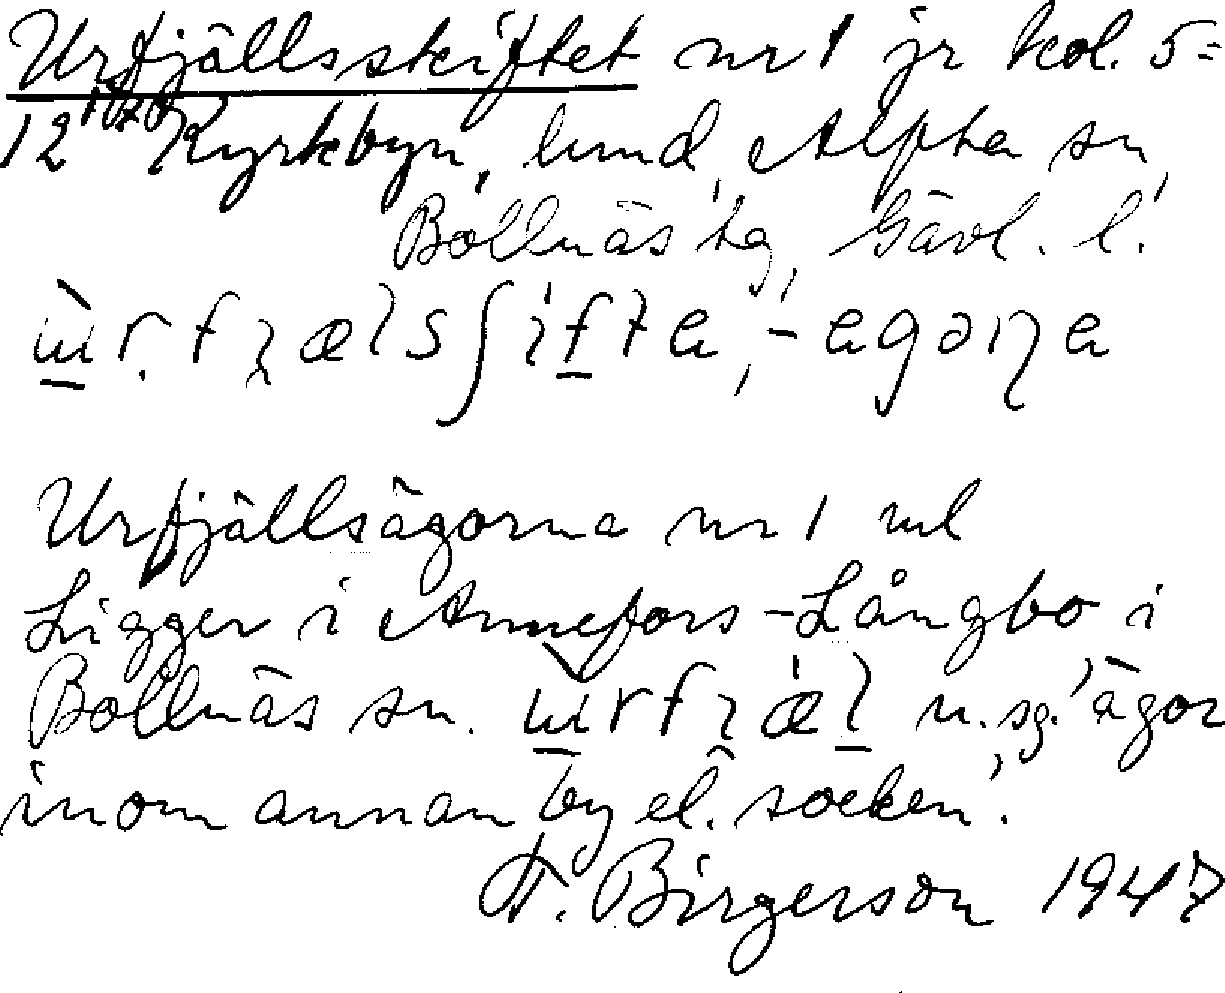 Urfjällsskiftet nr 1 jr kol. 5=
12 Kyrkbyn, lund, Alfta sn,
Bollnäs tg, Gävl. l.
Urfjällsägorna nr 1 ml
Ligger i Annefors-Långbo i
Bollnäs sn. n. sg. 'ägor
inom annan by el. socken'.
H. Birgerson 1947